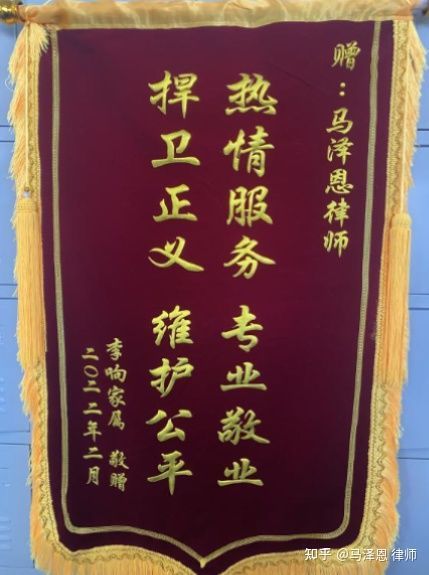 赠：马泽恩律师
热情服务 专业敬业
捍卫正义 维护公平
李响家属 敬赠
二〇二二年二月
知乎 @马泽恩 律师